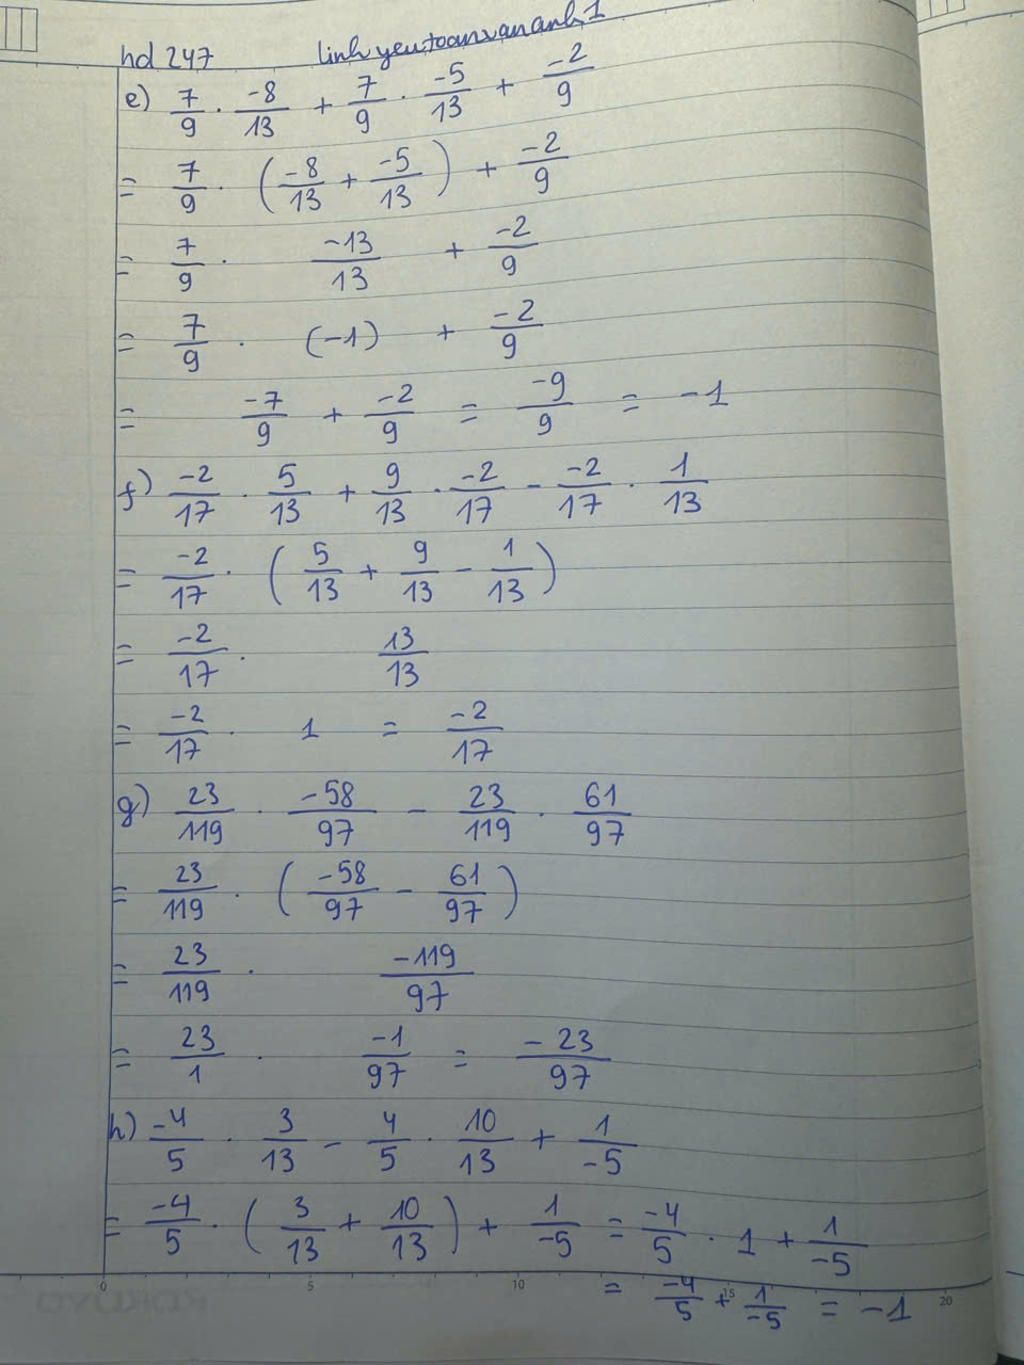 hd 247 linhyeutoanvananh1
e) 7/9 . -8/13 + 7/9 . -5/13 + -2/9
= 7/9 . (-8/13 + -5/13) + -2/9
= 7/9 . -13/13 + -2/9
= 7/9 . (-1) + -2/9
= -7/9 + -2/9 = -9/9 = -1
f) -2/17 . 5/13 + 9/13 . -2/17 - -2/17 . 1/13
= -2/17 . (5/13 + 9/13 - 1/13)
= -2/17 . 13/13
= -2/17 . 1 = -2/17
g) 23/119 . -58/97 - 23/119 . 61/97
= 23/119 . (-58/97 - 61/97)
= 23/119 . -119/97
= 23/1 . -1/97 = -23/97
h) -4/5 . 3/13 - 4/5 . 10/13 + 1/-5
= -4/5 . (3/13 + 10/13) + 1/-5 = -4/5 . 1 + 1/-5
= -4/5 + 1/-5 = -1
0 5 10 15 20